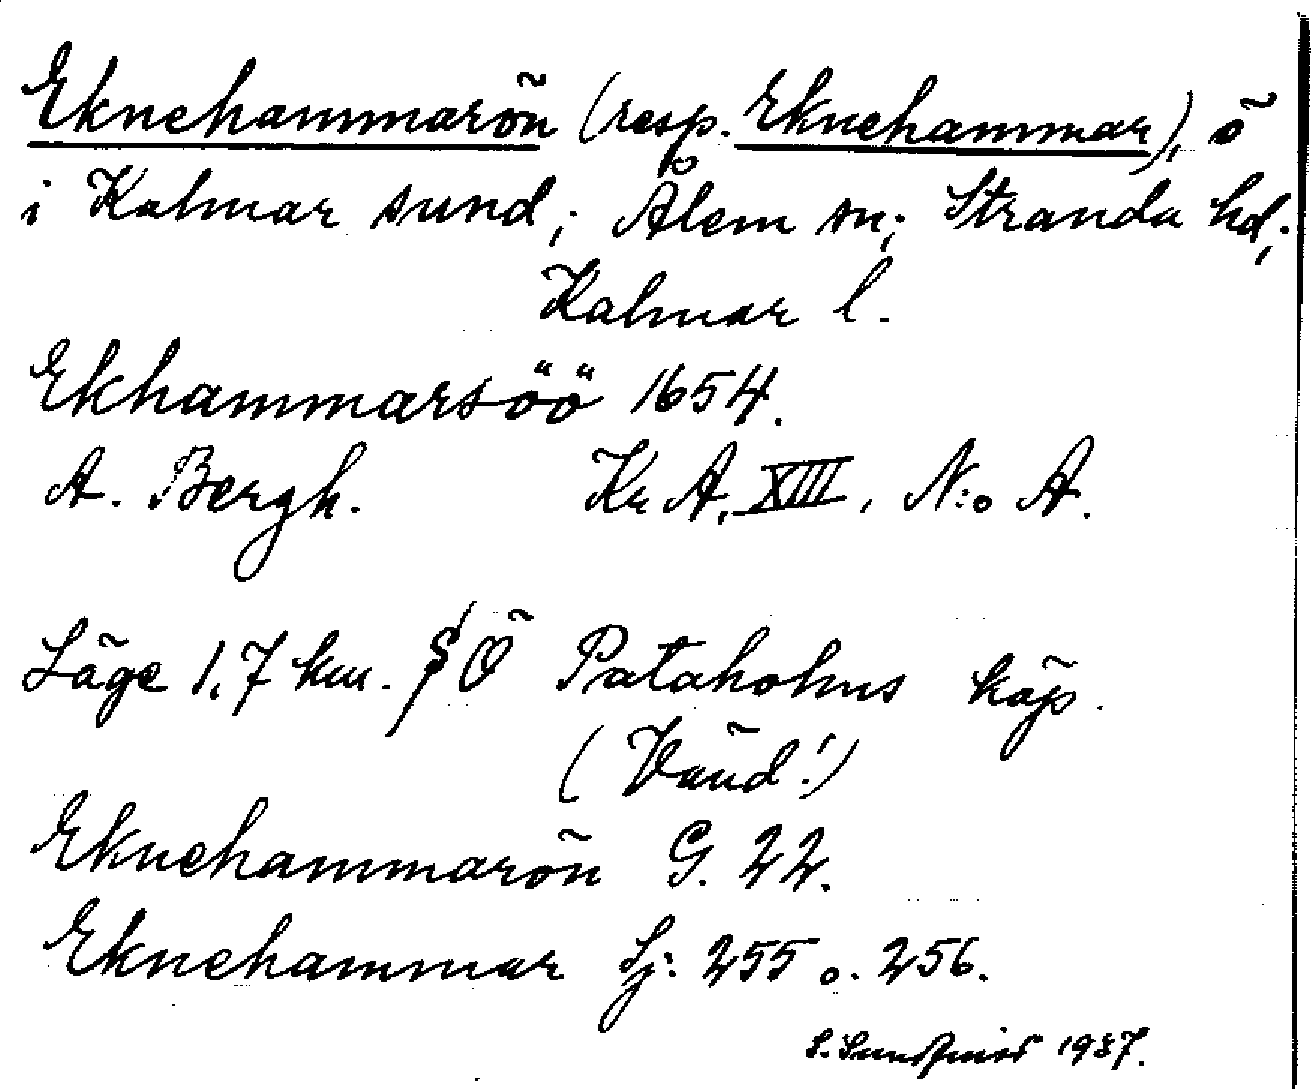 Eknehammarön (resp. Eknehammar), ö
i Kalmar sund; Ålem sn; Stranda hd;
Kalmar l.
Ekhammarsöö 1654.
A. Bergh. Kr. A. XIII, N:o A.
Läge 1,7 km. SÖ Pataholms köp.
(Vänd!)
Eknehammarön G. 22.
Eknehammar Sj: 255 o. 256.
1937.